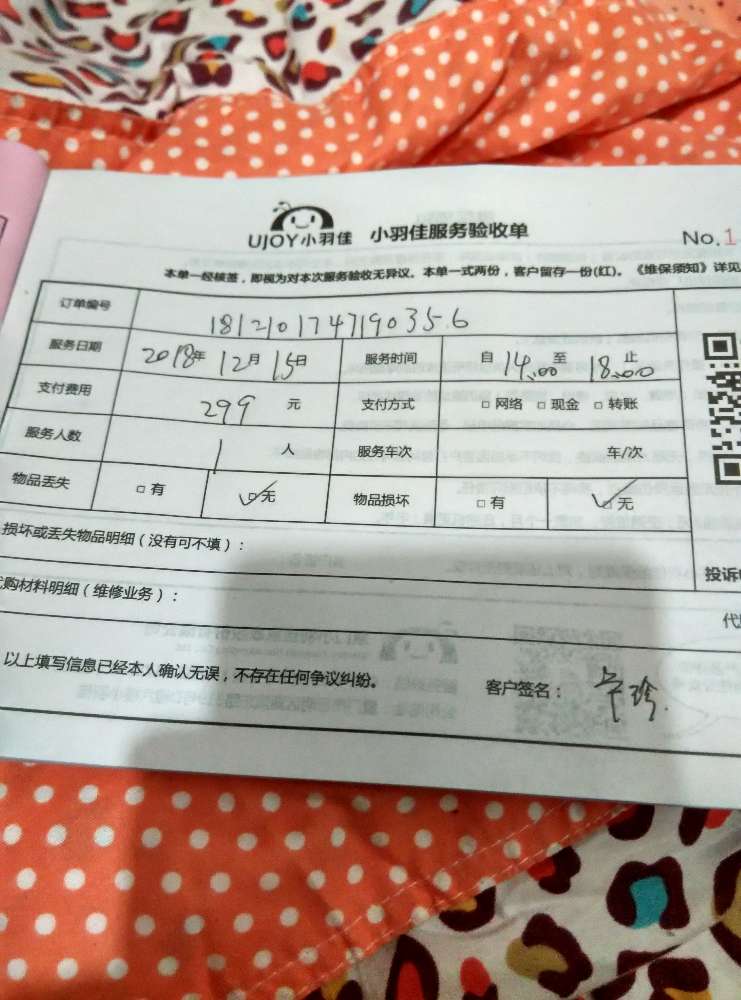 UJOY小羽佳 小羽佳服务验收单 No.1
本单一经核签，即视为对本次服务验收无异议。本单一式两份，客户留存一份(红)。《维保须知》详见
订单编号 181210174719035.6
服务日期 2018年 12月 15日 服务时间 自 14:00 至 18:00 止
支付费用 299 元 支付方式 □网络 □现金 □转账
服务人数 1 人 服务车次 车/次
物品丢失 □有 ☑无 物品损坏 □有 ☑无
损坏或丢失物品明细（没有可不填）：
投诉
购材料明细（维修业务）：
以上填写信息已经本人确认无误，不存在任何争议纠纷。 客户签名： 珍